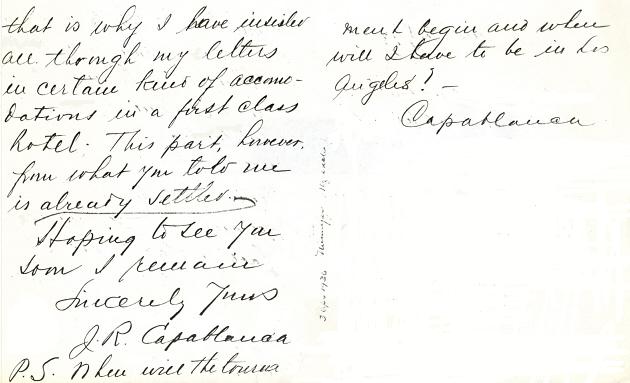 that is why I have insisted
all through my letters
in certain kind of accomo-
dations in a first class
hotel. This part, however,
from what you told me
is already settled. —
Hoping to see you
soon I remain
Sincerely Yours
J. R. Capablanca
P.S. When will the tourna
ment begin and when
will I have to be in Los
Angeles! —
Capablanca